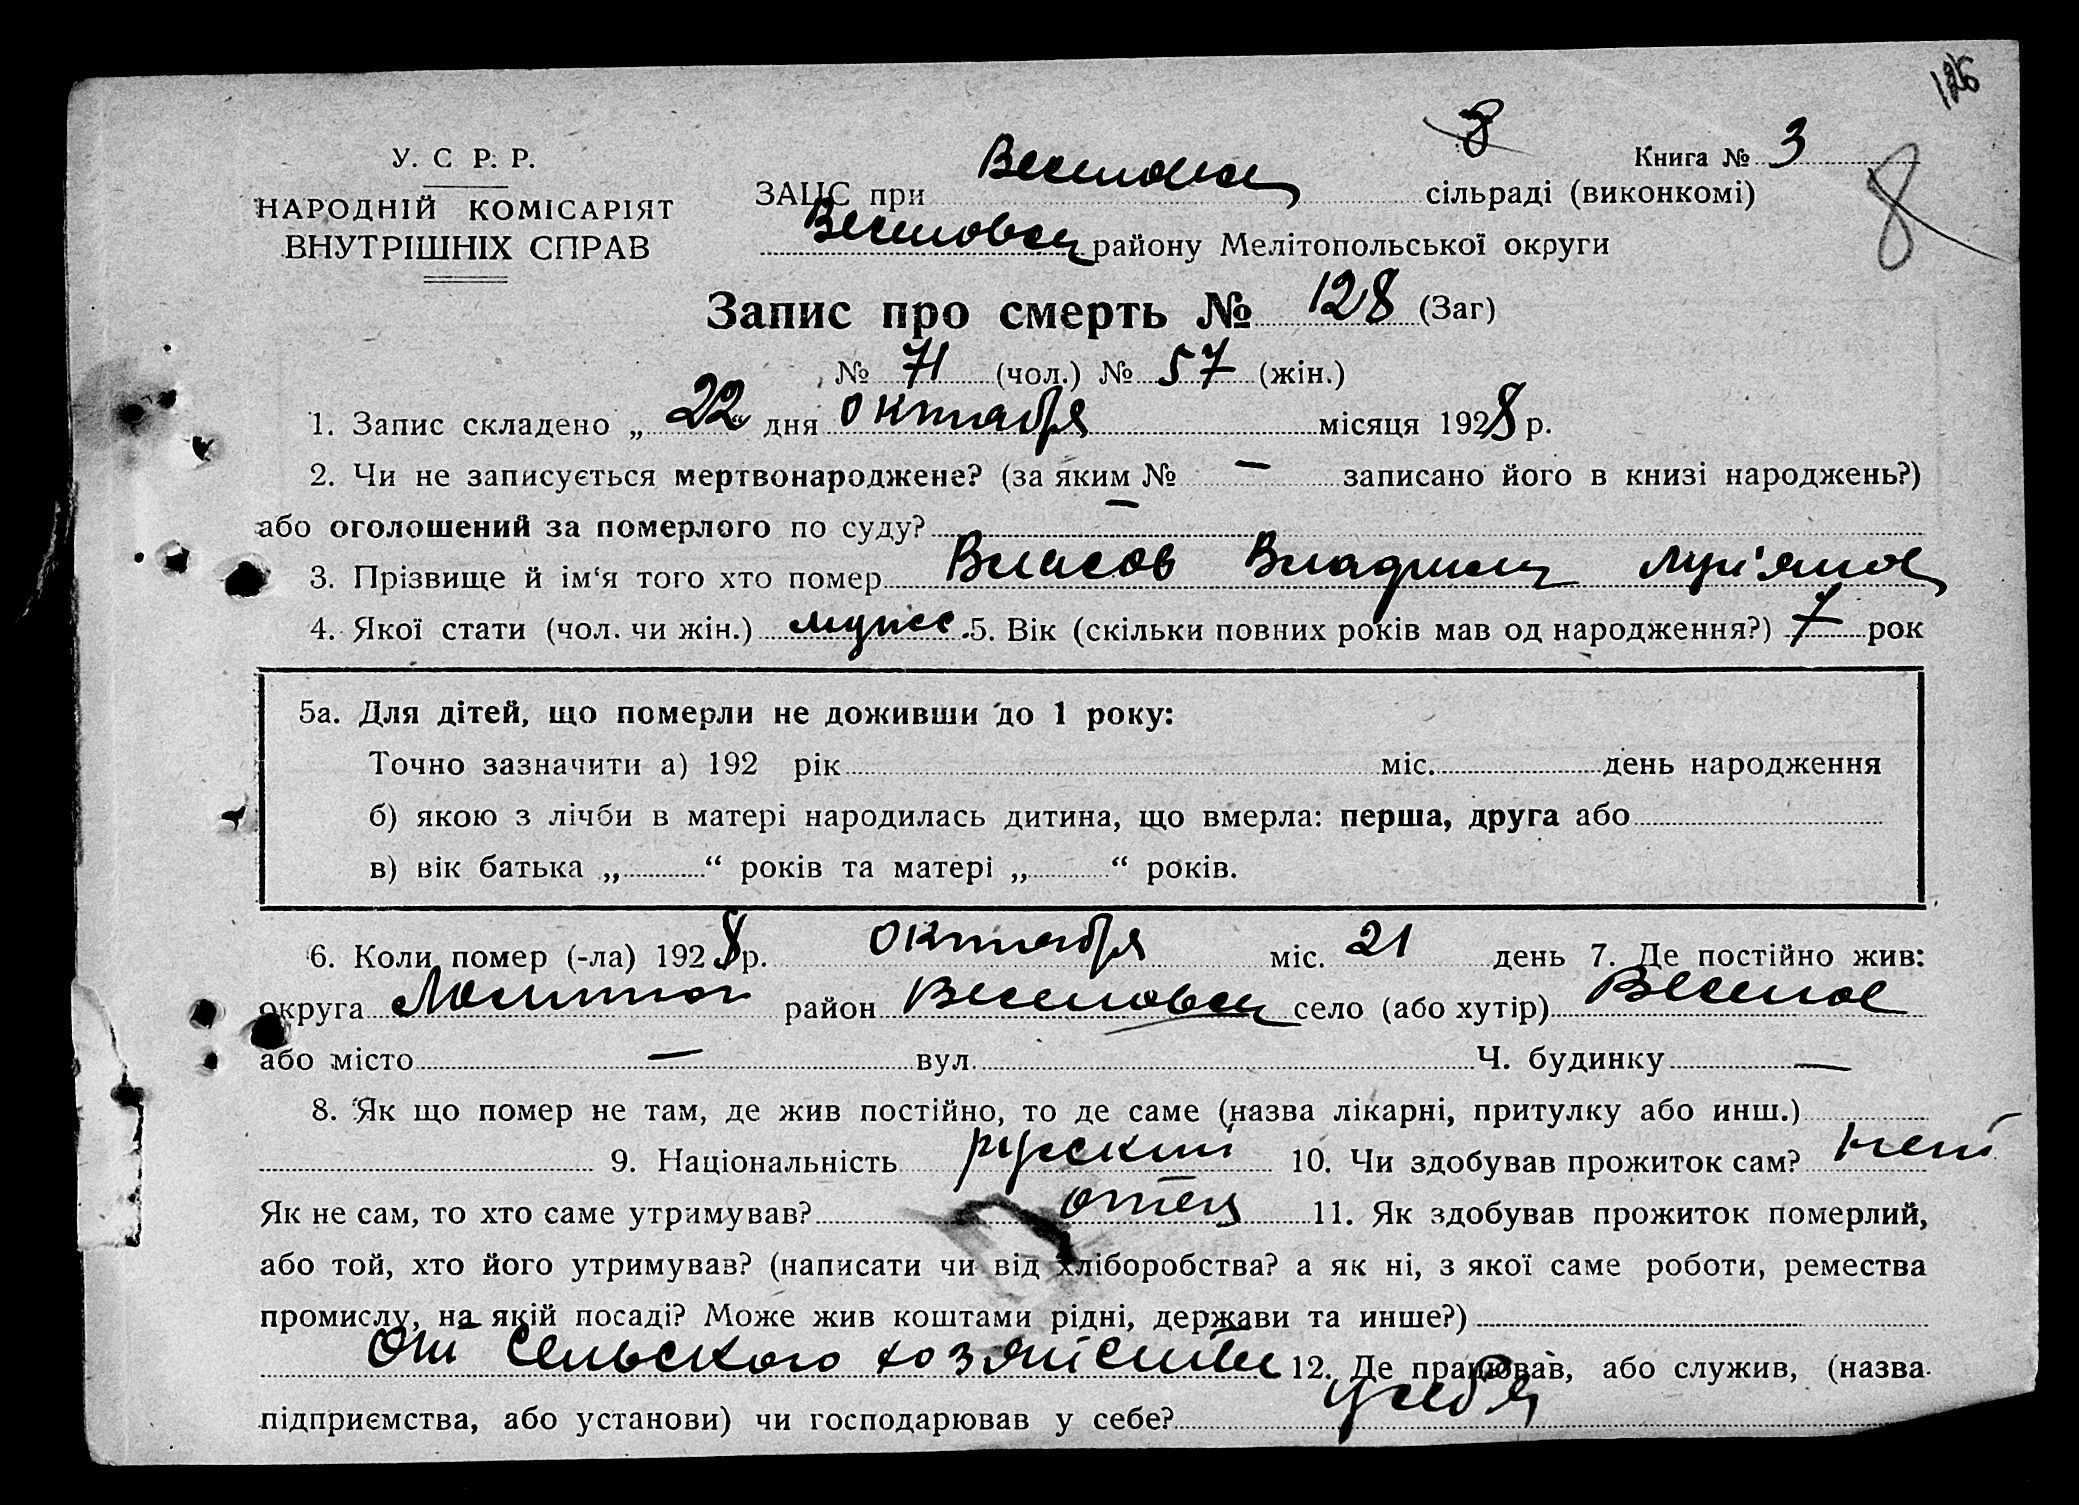 126
У. С. Р. Р.
НАРОДНІЙ КОМІСАРІЯТ
ВНУТРІШНІХ СПРАВ
8 Книга № 3
8
ЗАЦС при сільраді (виконкомі)
Веселовск району Мелітопольської округи
Запис про смерть № 128 (Заг)
, № 71 (чол.) № 57 (жін.)
1. Запис складено „ 22 “ дня октября місяця 1928 р.
2. Чи не записується мертвонароджене? (за яким № — записано його в книзі народжень?)
або оголошений за померлого по суду? —
3. Прізвище й ім‘я того хто помер Власов Владимир
4. Якої стати (чол. чи жін.) мужск. 5. Вік (скільки повних років мав од народження?) 7 рок
5а. Для дітей, що померли не доживши до 1 року:
Точно зазначити а) 192 рік міс. день народження
б) якою з лічби в матері народилась дитина, що вмерла: перша, друга або
в) вік батька „ “ років та матері „ “ років.
6. Коли помер (-ла) 1928 р. октября міс. 21 день 7. Де постійно жив:
округа район Веселовск село (або хутір) Веселое
або місто — вул. Ч. будинку —
8. Як що помер не там, де жив постійно, то де саме (назва лікарні, притулку або инш.)
9. Національність русский 10. Чи здобував прожиток сам? нет
Як не сам, то хто саме утримував? отец 11. Як здобував прожиток померлий,
або той, хто його утримував? (написати чи від хліборобства? а як ні, з якої саме роботи, ремества
промислу, на якій посаді? Може жив коштами рідні, держави та инше?)
От сельского хозяйства 12. Де працював, або служив, (назва
підприємства, або установи) чи господарював у себе? у себя